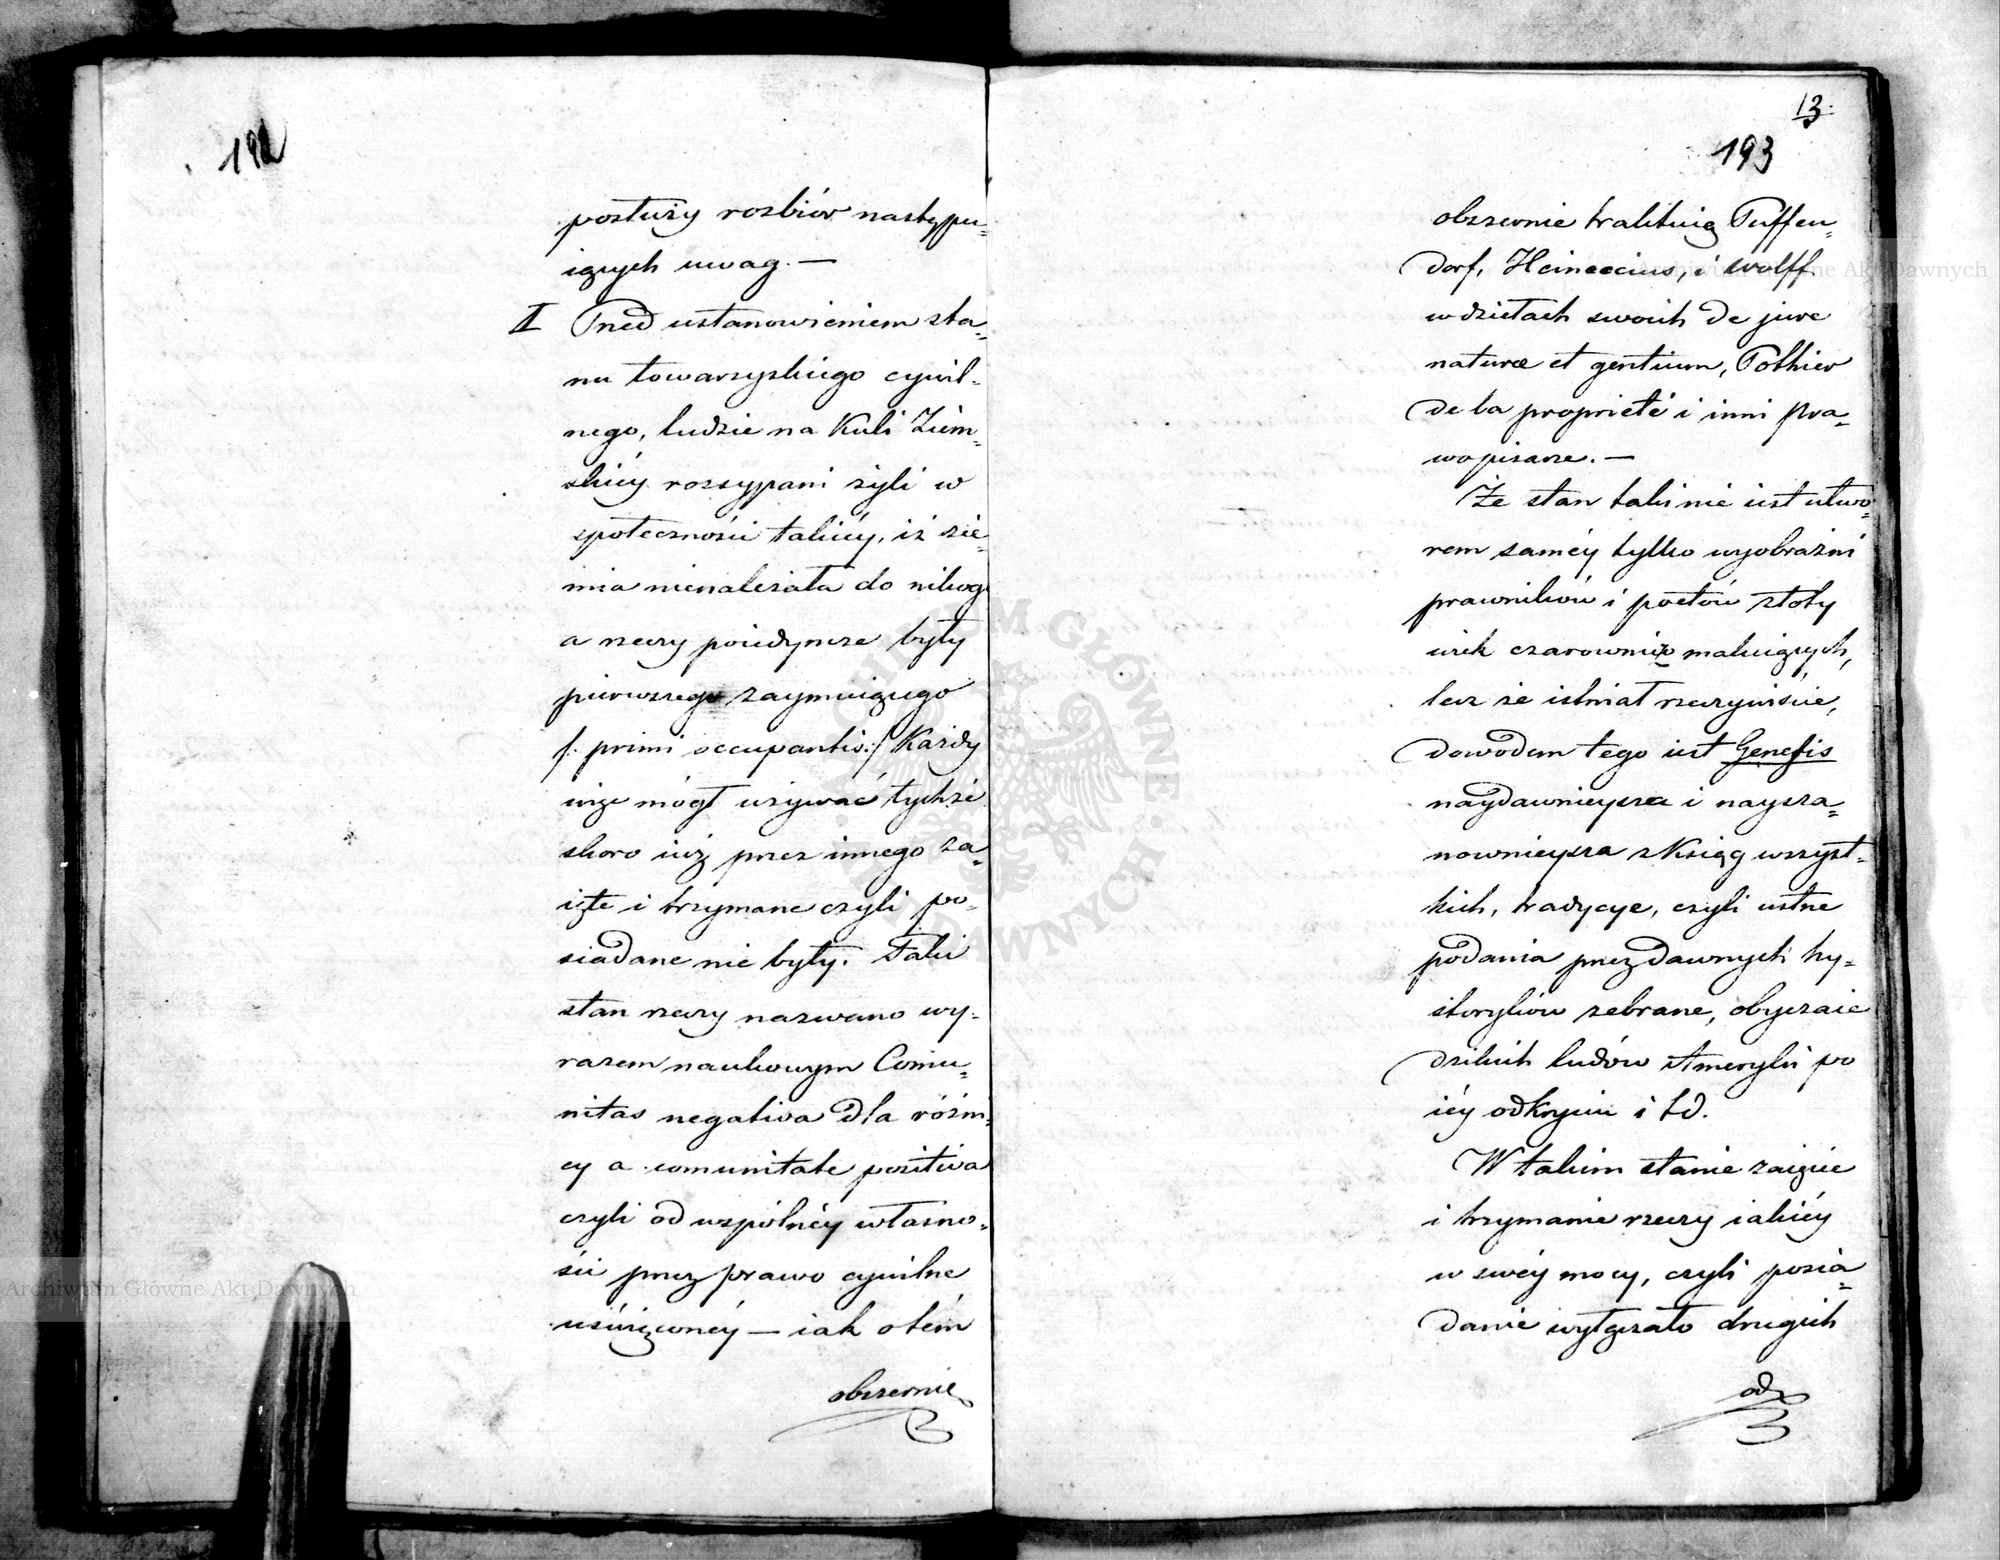 192
posłuży rozbiór następu=
iących uwag. —
II Przed ustanowieniem sta=
nu towarzyskiego cywil=
nego, ludzie na Kuli Ziem=
skiéy rozsypani żyli w
społeczności takiéy, iż zie=
mia nienależała do nikogo
a rzeczy poiedyncze były
pierwszego zaymuiącego
/: primi occupantis :/ Każdy
więc mógł używać tychże
skoro iuż przez innego za=
ięte i trzymane czyli po=
siadane nie były. Taki
stan rzeczy nazwano wy=
razem naukowym Comu=
nitas negativa dla różni=
cy a comunitate positiva
czyli od wspólnéy własno=
ści przez prawo cywilne
uświęconéy — iak o tém
obszernie
13.
193
obszernie traktuią Puffen=
dorf, Heineccius, i Wolff
w dziełach swoich de jure
naturæ et gentium, Pothier
de la proprieté i inni pra=
wopisarze. —
Że stan taki nie iest utwo=
rem saméy tylko wyobraźni
prawników i poetów złoty
wiek czarownie maluiących,
lecz że istniał rzeczywiście,
dowodem tego iest Genesis
naydawnieysza i naysza=
nownieysza z Ksiąg wszyst=
kich, tradycye, czyli ustne
podania przez dawnych hy=
storyków zebrane, obyczaie
dzikich ludów Ameryki po
iéy odkryciu i t d.
W takim stanie zaięcie
i trzymanie rzeczy iakiéy
w swéy mocy, czyli posia=
danie wyłączało drugich
od
Archiwum Główne Akt Dawnych
Archiwum Główne Akt Dawnych
ARCHIWUM GŁÓWNE AKT DAWNYCH